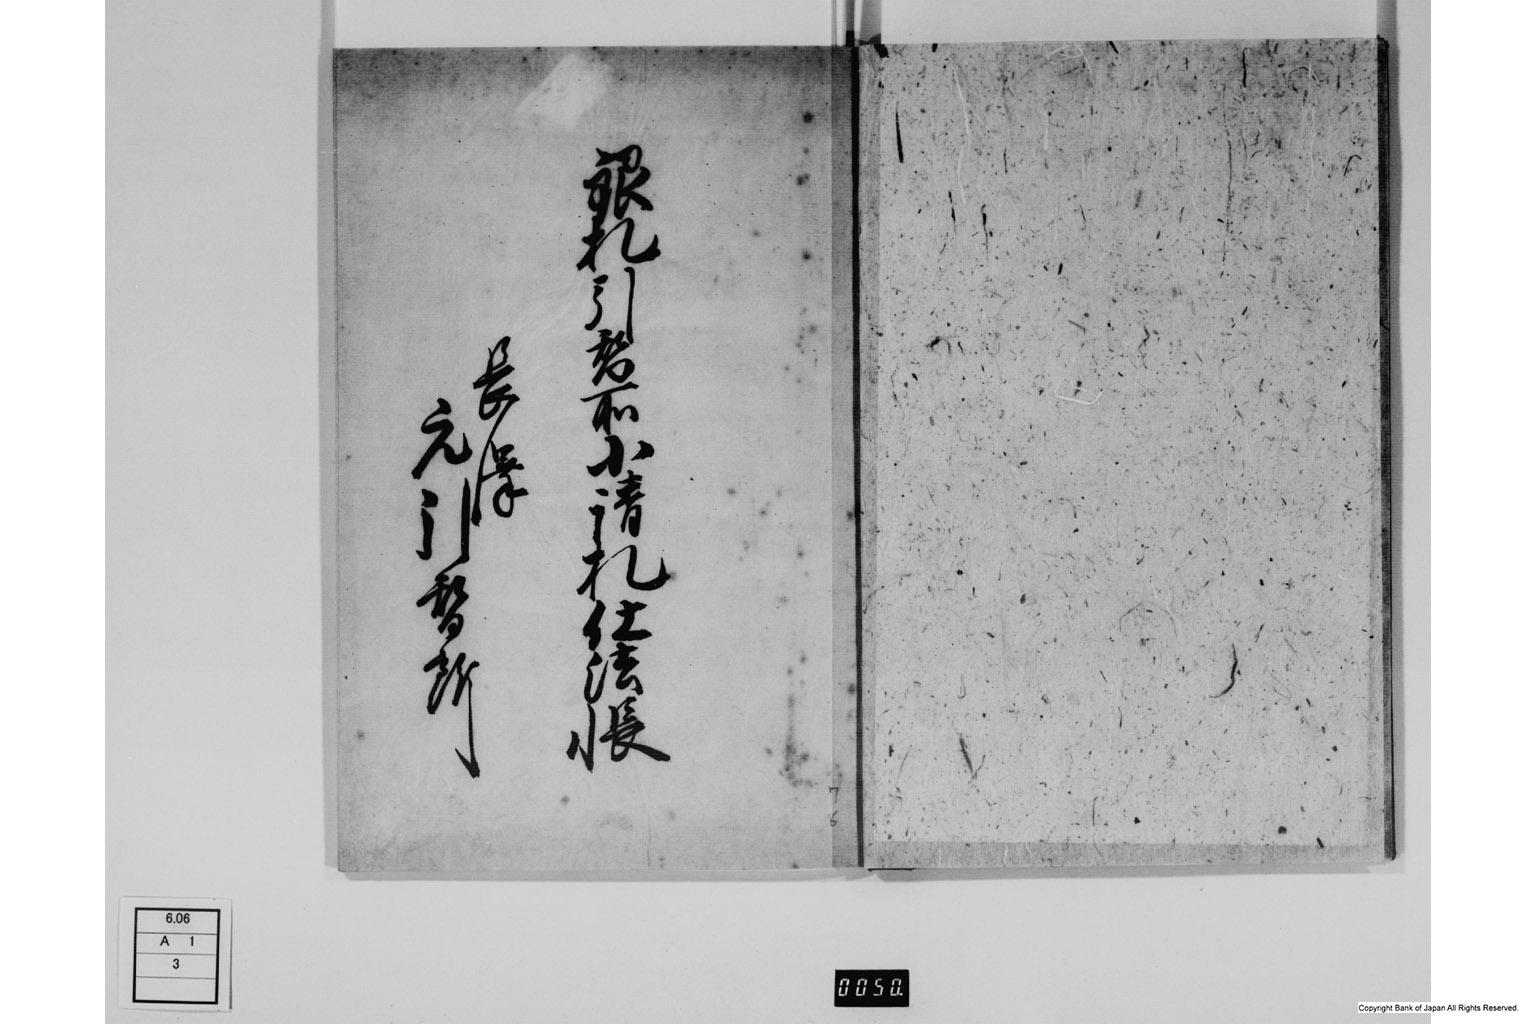 銀札引替所小請札仕法帳
長澤
元引替所
76
6.06
A 1
3
0050.
Copyright Bank of Japan All Rights Reserved.